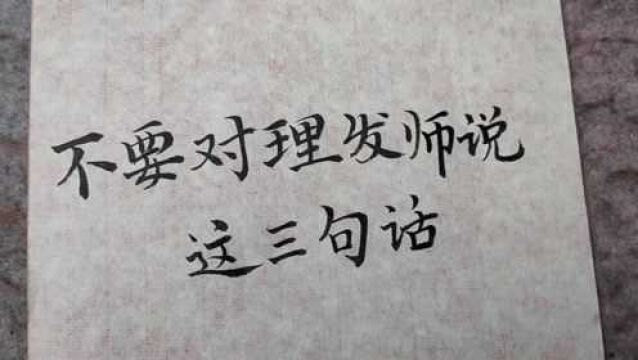 不要对理发师说
这三句话